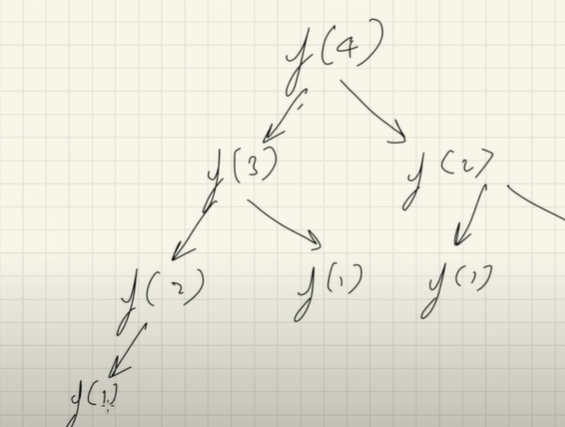 f(4)
f(3) f(2)
f(2) f(1) f(1)
f(1)